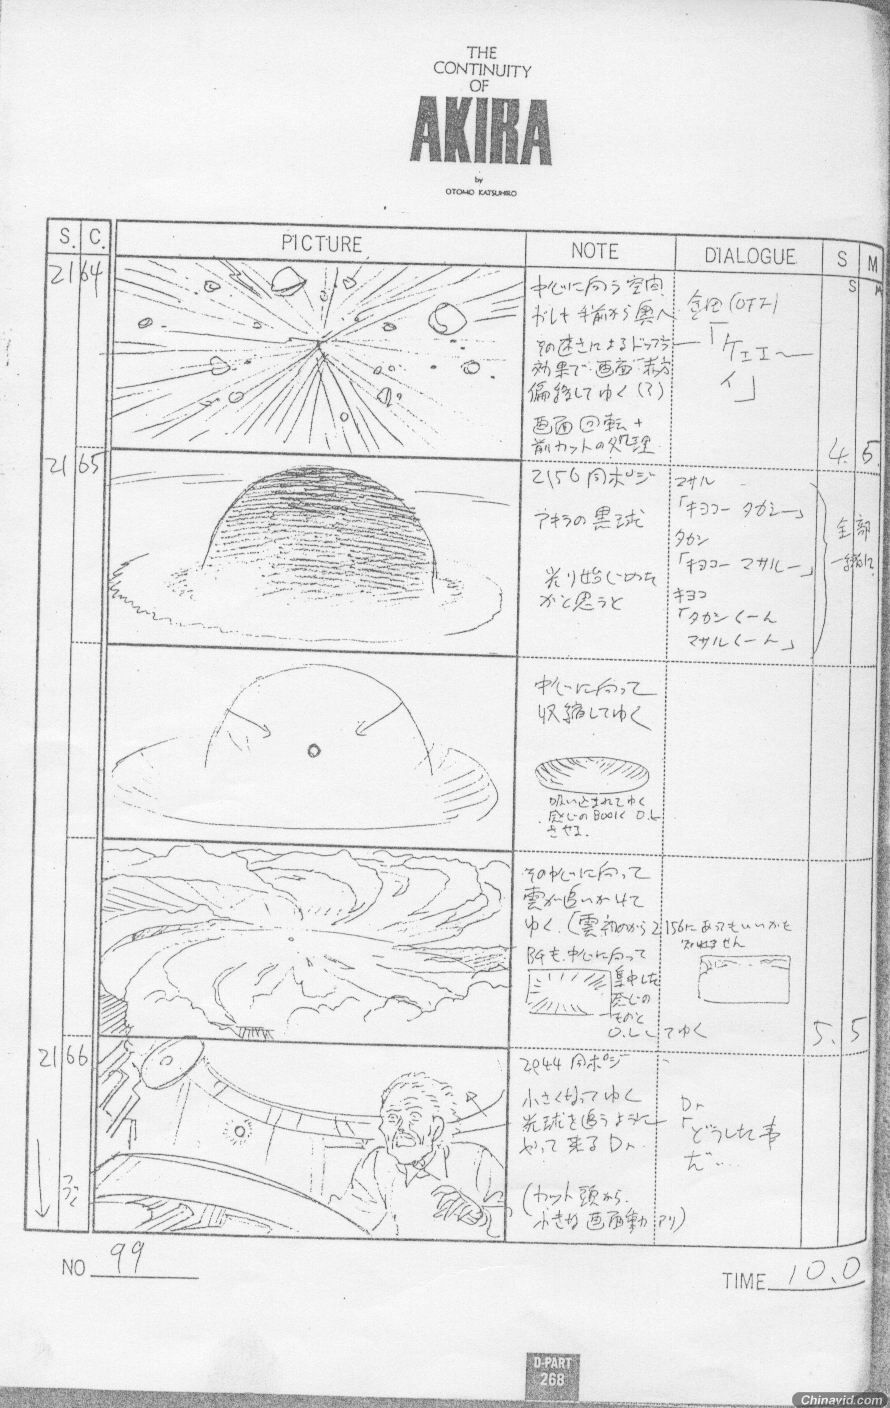 THE
CONTINUITY
OF
AKIRA
by
OTOMO KATSUHIRO
S. C. PICTURE NOTE DIALOGUE S M
S M
2164
中心に向う空間
手前から奥へ
その速さによるドップラー
効果で画面赤方
偏移してゆく(?)
画面回転+
前カットの処理
金田(OFF)
「ケェエー
イ」
4. 5.
2165
2156同ポジ
アキラの黒球
光り始じめた
かと思うと
マサル
「キヨコー タカシー」
タカシ
「キヨコー マサルー」
キヨコ
「タカシくーん
マサルくーん」
全部
一緒に
中心に向って
収縮してゆく
吸い込まれてゆく
感じのBOOK O.L
させる.
その中心に向って
雲が追いかけて
ゆく.(雲初めから2156にあってもいいかも
しれません
BGも中心に向って
集中した
感じの
ものと
O.Lしてゆく
5. 5
2166
2044同ポジ
小さくなってゆく
光球を追うように
やって来るDr.
(カット頭から.
小さな画面動アリ)
Dr
「どうした事
だ…
NO 99
TIME 10.0
D-PART
268
Chinavid.com